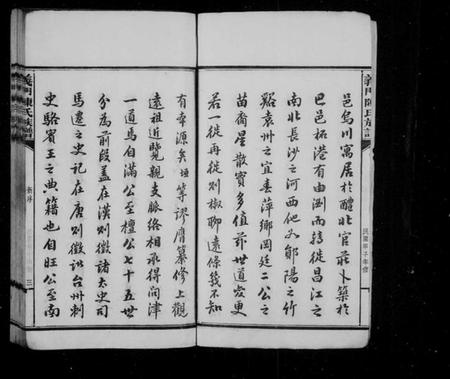 義門陳氏族譜
民國甲子年修
邑烏川寓居於醴北官莊卜築於
巴邑柘港有由瀏而轉徙昌江之
南北長沙之河西他又鄖陽之竹
谿袁州之宜春萍鄉岡廷二公之
苗裔星散實多值茲世道變更
若一徙再徙則椒聊遠條幾不知
有本源矣垣等謬膺纂修上觀
遠祖近覽親支脈絡相承得問津
一道焉自滿公至檀公七十五世
分為前段蓋在漢則徵諸太史司
馬遷之史記在唐則徵諸台州刺
史駱賓王之典籍也自旺公至南
義門陳氏族譜
新序
三